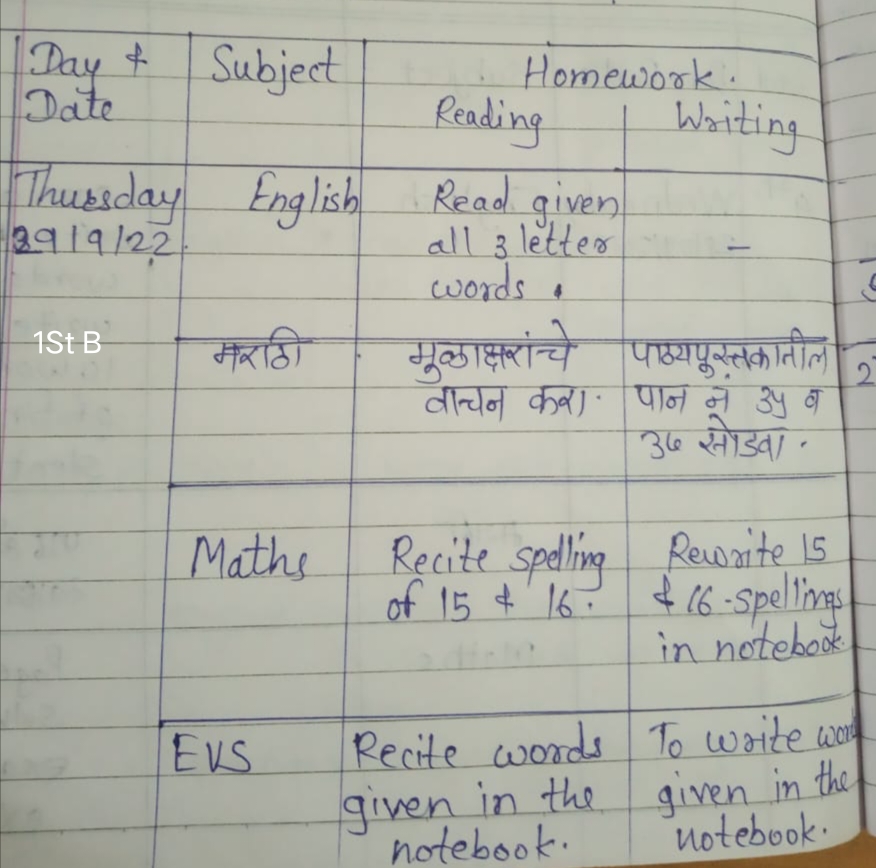 Day & Subject Homework.
Date Reading Writing
Thursday English Read given
29/9/22. all 3 letter –
words.
1St B
मराठी मुळाक्षरांचे पाठ्यपुस्तकातील
वाचन करा. पान नं ३५ व
३६ सोडवा.
Maths Recite spelling Rewrite 15
of 15 & 16. & 16 -spellings
in notebook.
EVS Recite words To write word
given in the given in the
notebook. notebook.